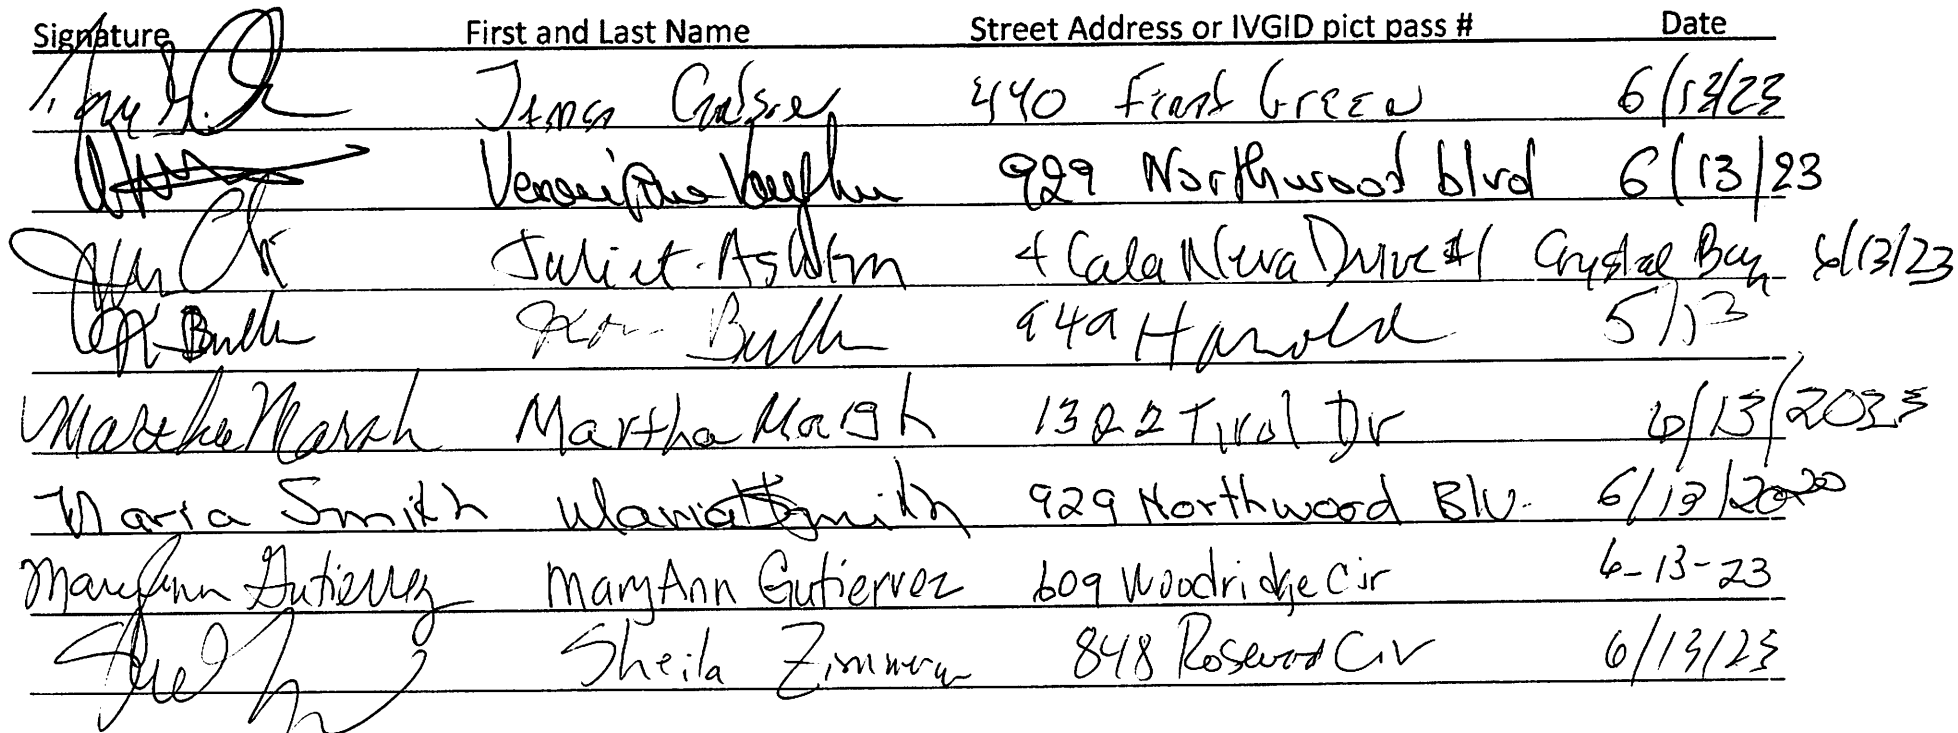 Signature First and Last Name Street Address or IVGID pict pass # Date
440 First Green 6/13/23
Vaughn 929 Northwood blvd 6/13/23
Juliet Ashton 4 Cala Neva Drive #1 Crystal Bay 6/13/23
K Bulk Bulk 949 Harold 5/13
Martha Marsh Martha Marsh 1322 Tirol Dr 6/13/2023
Maria Smith Maria Smith 929 Northwood Blv. 6/13/2020
MaryAnn Gutierrez MaryAnn Gutierrez 609 Woodridge Cir 6-13-23
Sheila Zimmerman 848 Rosewood Cir 6/13/23